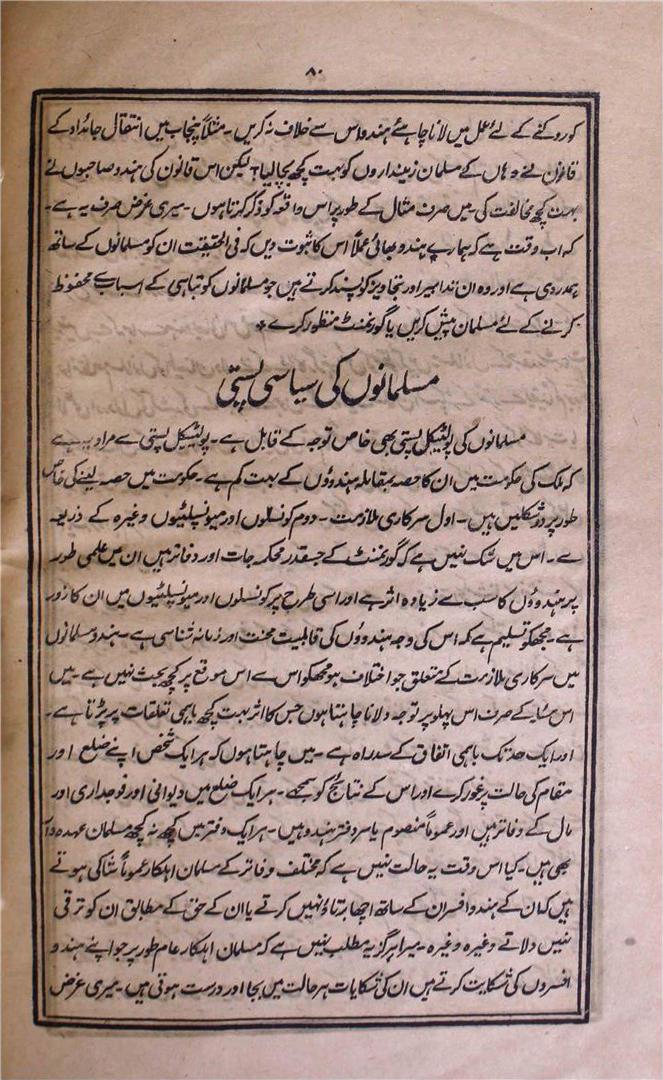 ۸۰
کو روکنے کے لئے عمل میں لانا چاہئے ہندو اس سے خلاف نہ کریں ۔ مثلاً پنجاب میں انتقال جائداد کے
قانون نے وہاں کے مسلمان زمینداروں کو بہت کچھ بچا لیا؟ لیکن اس قانون کی ہندو صاحبوں نے
بہت کچھ مخالفت کی ۔ میں صرف مثال کے طور پر اس واقعہ کو ذکر کرتا ہوں ۔ میری غرض صرف یہ ہے ۔
کہ اب وقت ہے کہ ہمارے ہندو بھائی عملاً اس کا ثبوت دیں کہ فی الحقیقت ان کو مسلمانوں کے ساتھ
ہمدردی ہے اور وہ ان تدابیر اور تجاویز کو پسند کرتے ہیں جو مسلمانوں کو تباہی کے اسباب سے محفوظ
کرنے کے لئے مسلمان پیش کریں یا گورنمنٹ منظور کرے *
مسلمانوں کی سیاسی پستی
مسلمانوں کی پولٹیکل پستی بھی خاص توجہ کے قابل ہے ۔ پولٹیکل پستی سے مراد یہ ہے
کہ ملک کی حکومت میں ان کا حصہ بمقابلہ ہندوؤں کے بہت کم ہے ۔ حکومت میں حصہ لینے کی خاص
طور پر دو شکلیں ہیں ۔ اول سرکاری ملازمت ۔ دوم کونسلوں اور میونسپلٹیوں وغیرہ کے ذریعہ
سے ۔ اس میں شک نہیں ہے کہ گورنمنٹ کے جسقدر محکمہ جات اور دفاتر ہیں ان میں علمی طور
پر ہندووں کا سب سے زیادہ اثر ہے اور اسی طرح پر کونسلوں اور میونسپلٹیوں میں ان کا زور
ہے ۔ مجھکو تسلیم ہے کہ اس کی وجہ ہندووں کی قابلیت محنت اور زمانہ شناسی ہے ۔ ہندو مسلمانوں
میں سرکاری ملازمت کے متعلق جو اختلاف ہو مجھکو اس سے اس موقع پر کچھ بحث نہیں ہے ۔ میں
اس مسئلہ کے صرف اس پہلو پر توجہ دلانا چاہتا ہوں جس کا اثر بہت کچھ باہمی تعلقات پر پڑتا ہے ۔
اور ایک حد تک باہمی اتفاق کے سدراہ ہے ۔ میں چاہتا ہوں کہ ہر ایک شخص اپنے ضلع اور
مقام کی حالت پر غور کرے اور اس کے نتائج کو سمجھے ۔ ہر ایک ضلع میں دیوانی اور فوجداری اور
مال کے دفاتر ہیں اور عموماً منصرم یا سر دفتر ہندو ہیں ۔ ہر ایک دفتر میں کچھ نہ کچھ مسلمان عہدہ دار
بھی ہیں ۔ کیا اس وقت یہ حالت نہیں ہے کہ مختلف دفاتر کے مسلمان اہلکار عموماً شاکی ہوتے
ہیں کہ ان کے ہندو افسران کے ساتھ اچھا برتاؤ نہیں کرتے یا ان کے حق کے مطابق ان کو ترقی
نہیں دلاتے وغیرہ وغیرہ ۔ میرا ہرگز یہ مطلب نہیں ہے کہ مسلمان اہلکار عام طور پر جو اپنے ہندو
افسروں کی شکایت کرتے ہیں ان کی شکایات ہر حالت میں بجا اور درست ہوتی ہیں ۔ میری غرض